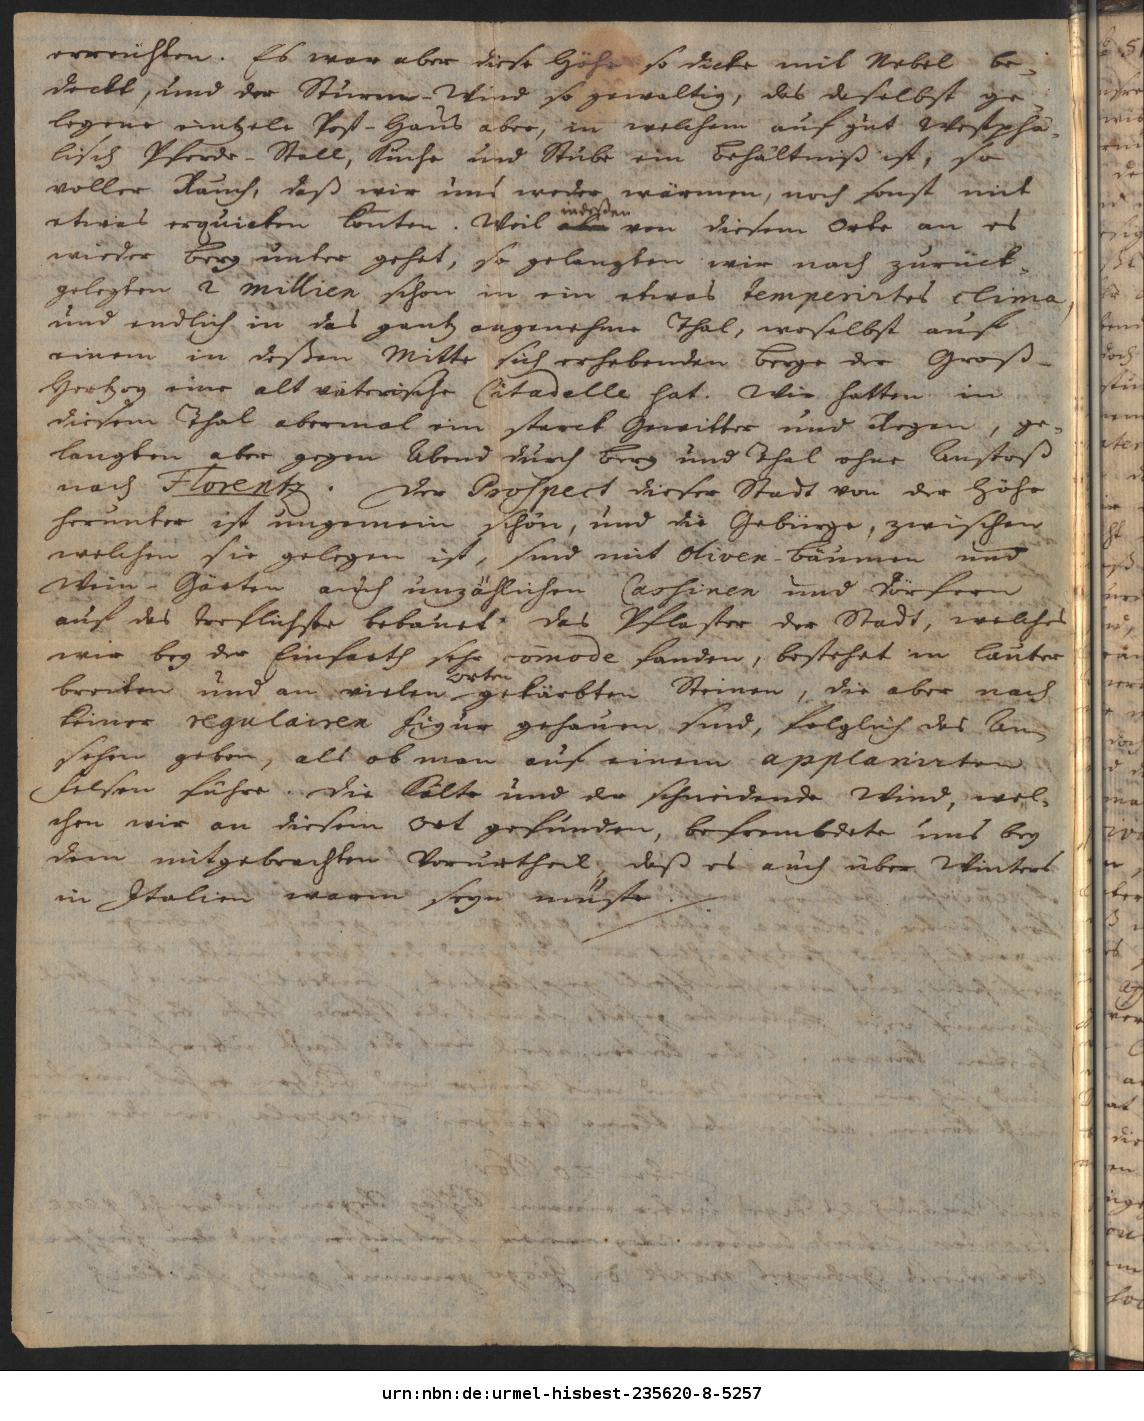 erreichten. Es war aber diese Höhe so dicke mit Nebel be-
deckt, und der Sturm-Wind so gewaltig, das daselbst ge-
legene eintzele Post-Haus aber, in welchem auf gut Westphä-
lisch Pferde-Stall, Küche und Stube ein Behältniß ist, so
voller Rauch, daß wir uns weder wärmen, noch sonst mit
etwas erquicken konten. Weil indeßen von diesem Orte an es
wieder Berg unter gehet, so gelangten wir nach zurück-
gelegten 2 Millien schon in ein etwas temperirtes clima,
und endlich in das gantz angenehme Thal, woselbst auf
einem in deßen Mitte sich erhebenden Berge der Groß-
Hertzog eine alt väterische Citadelle hat. Wir hatten in
diesem Thal abermal ein starck Gewitter und Regen, ge-
langten aber gegen Abend durch Berg und Thal ohne Anstoß
nach Florentz. Der Prospect dieser Stadt von der Höhe
herunter ist ungemein schön, und die Gebürge, zwischen
welchen sie gelegen ist, sind mit Oliven-Bäumen und
Wein-Gärten auch unzählichen Cassinen und Dörfern
auf das trefflichste bebauet. Das Pflaster der Stadt, welches
wir bey der Einfarth sehr com̄ode fanden, bestehet in lauter
breiten und an vielen Orten gekärbten Steinen, die aber nach
keiner regulairen Figur gehauen sind, folglich das An-
sehen geben, als ob man auf einem applanirten
Felsen führe. Die Kälte und der schneidende Wind, wel-
chen wir an diesem Ort gefunden, befrembdete uns bey
dem mitgebrachten Vorurtheil, daß es auch über Winters
in Italien warm seyn müste.
urn:nbn:de:urmel-hisbest-235620-8-5257